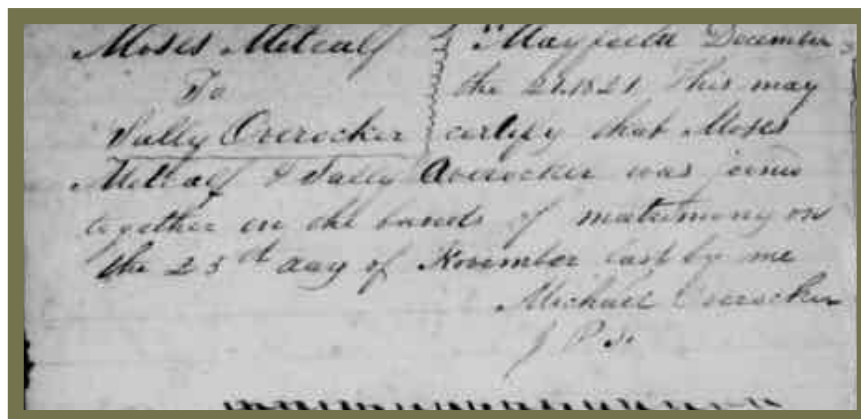 Moses Metcalf Mayfield December
To the 21. 1821 This may
Sally Overocker certify that Moses
Metcalf & Sally Overocker was joined
together in the bands of matrimony on
the 25th day of November last by me
Michael Overocker
J P s.